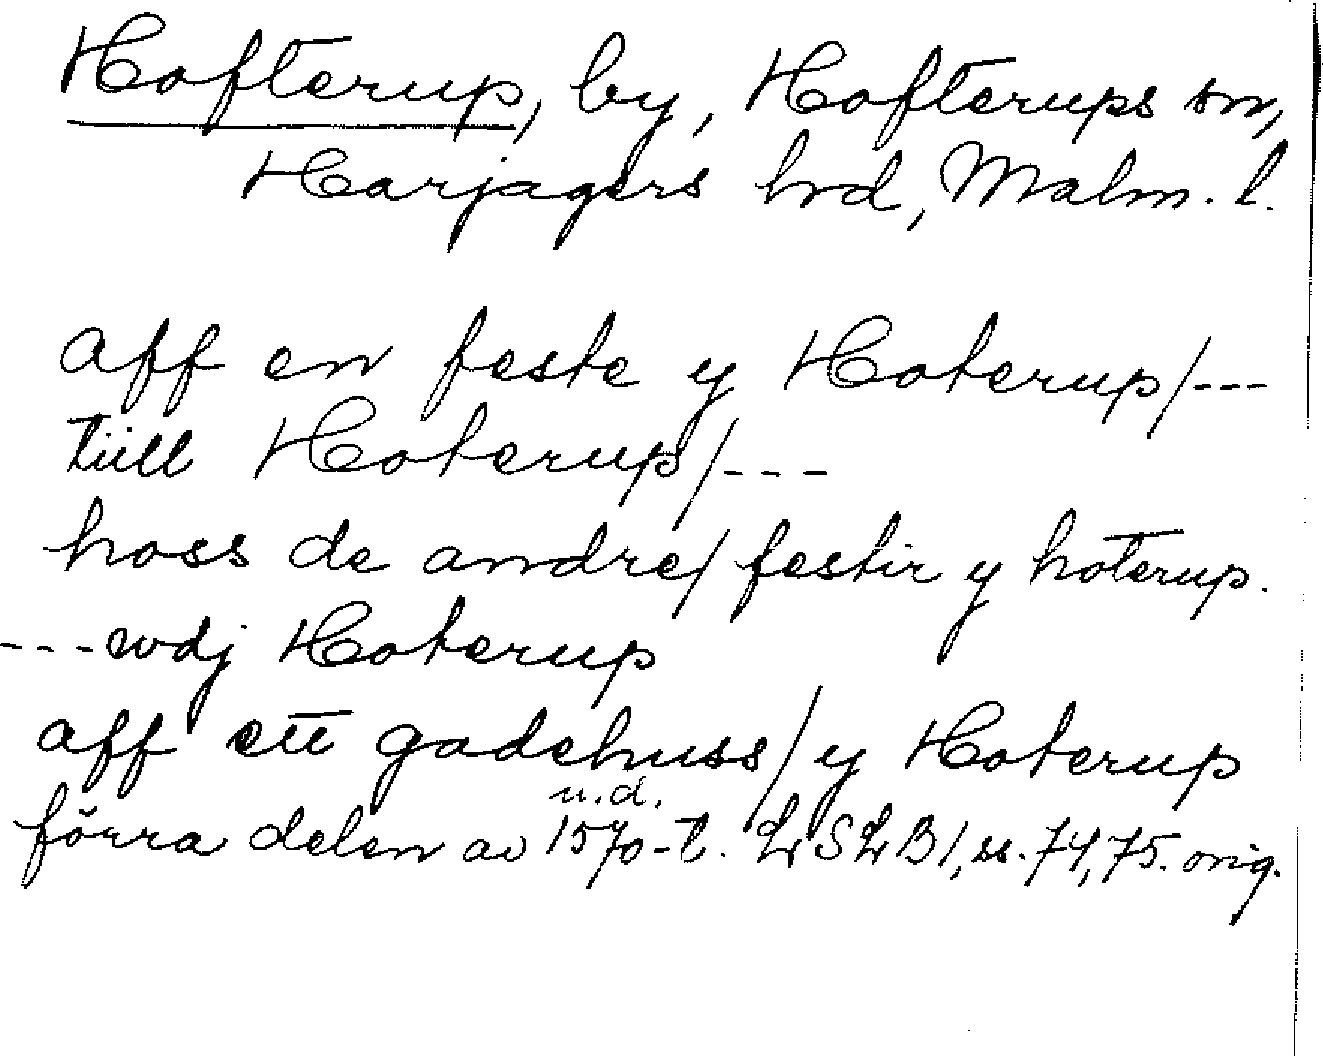 Hofterup, by, Hofterups sn,
Harjagers hrd, Malm. l.
aff en feste y Hoterup/---
tiill Hoterup/---
hoss de andre/ festir y hoterup.
---wdj Hoterup
aff ett gadehuss/y Hoterup
u.d.
förra delen av 1570-t. LSLB1, ss. 74, 75. orig.